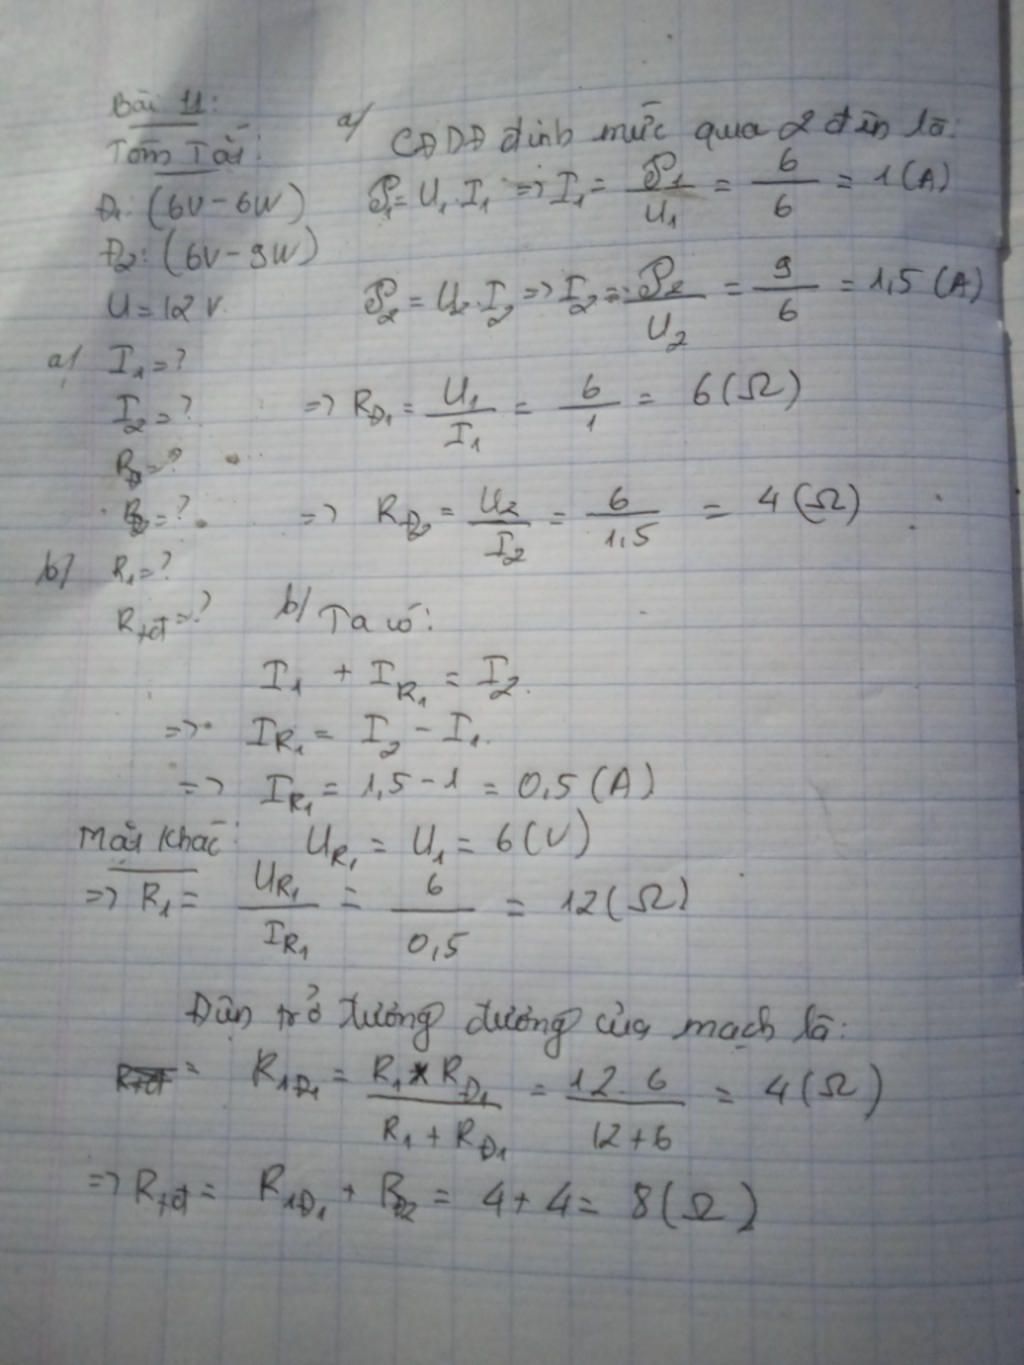 Bài 11:
Tóm Tắt:
Đ1: (6V - 6W)
Đ2: (6V - 9W)
U = 12 V
a/ I1 = ?
I2 = ?
RĐ1 = ?
RĐ2 = ?
b/ R1 = ?
Rtđ = ?
a/ CĐDĐ định mức qua 2 đèn là:
P1 = U1.I1 => I1 = P1/U1 = 6/6 = 1 (A)
P2 = U2.I2 => I2 = P2/U2 = 9/6 = 1,5 (A)
=> RĐ1 = U1/I1 = 6/1 = 6 (Ω)
=> RĐ2 = U2/I2 = 6/1,5 = 4 (Ω)
b/ Ta có:
I1 + IR1 = I2.
=> IR1 = I2 - I1.
=> IR1 = 1,5 - 1 = 0,5 (A)
Mặt khác: UR1 = U1 = 6 (V)
=> R1 = UR1/IR1 = 6/0,5 = 12 (Ω)
Điện trở tương đương của mạch là:
= R1Đ1 = R1 * RĐ1/R1 + RĐ1 = 12.6/12+6 = 4 (Ω)
=> Rtđ = R1Đ1 + RĐ2 = 4 + 4 = 8 (Ω)